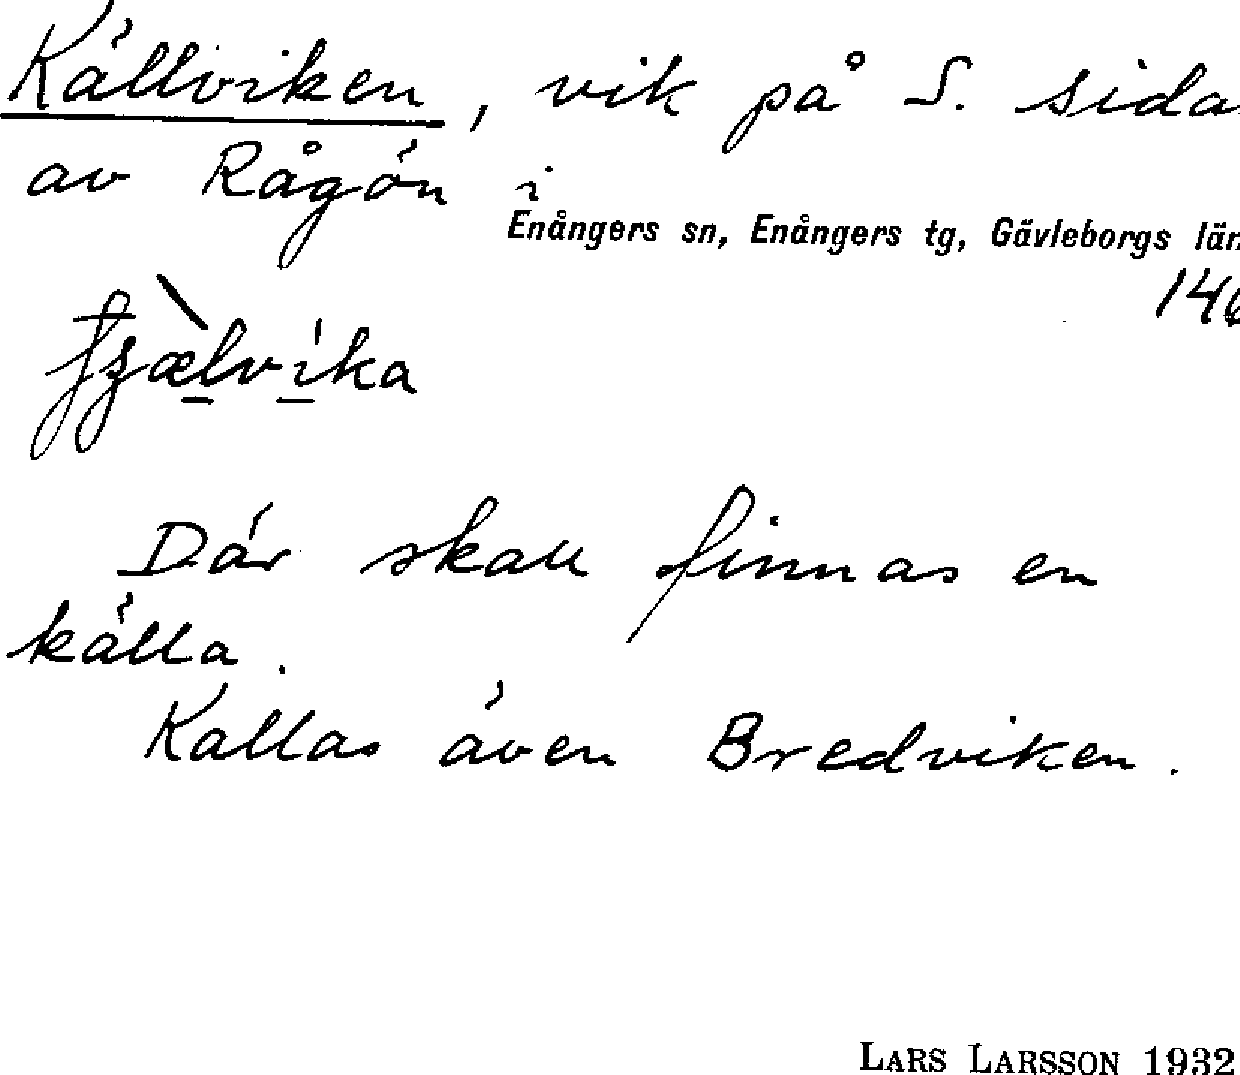 Källviken, vik på S. sidan
av Rågön i
Enångers sn, Enångers tg, Gävleborgs län
Där skall finnas en
källa.
Kallas även Bredviken.
LARS LARSSON 1932